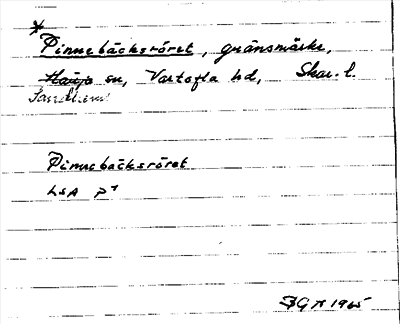 *
Pinnebäcksröret, gränsmärke,
Häyjo sn, Vartofta hd, Skar. l.
Sandhem
Pinnebäcksröret
LSA P 1
BG 1965